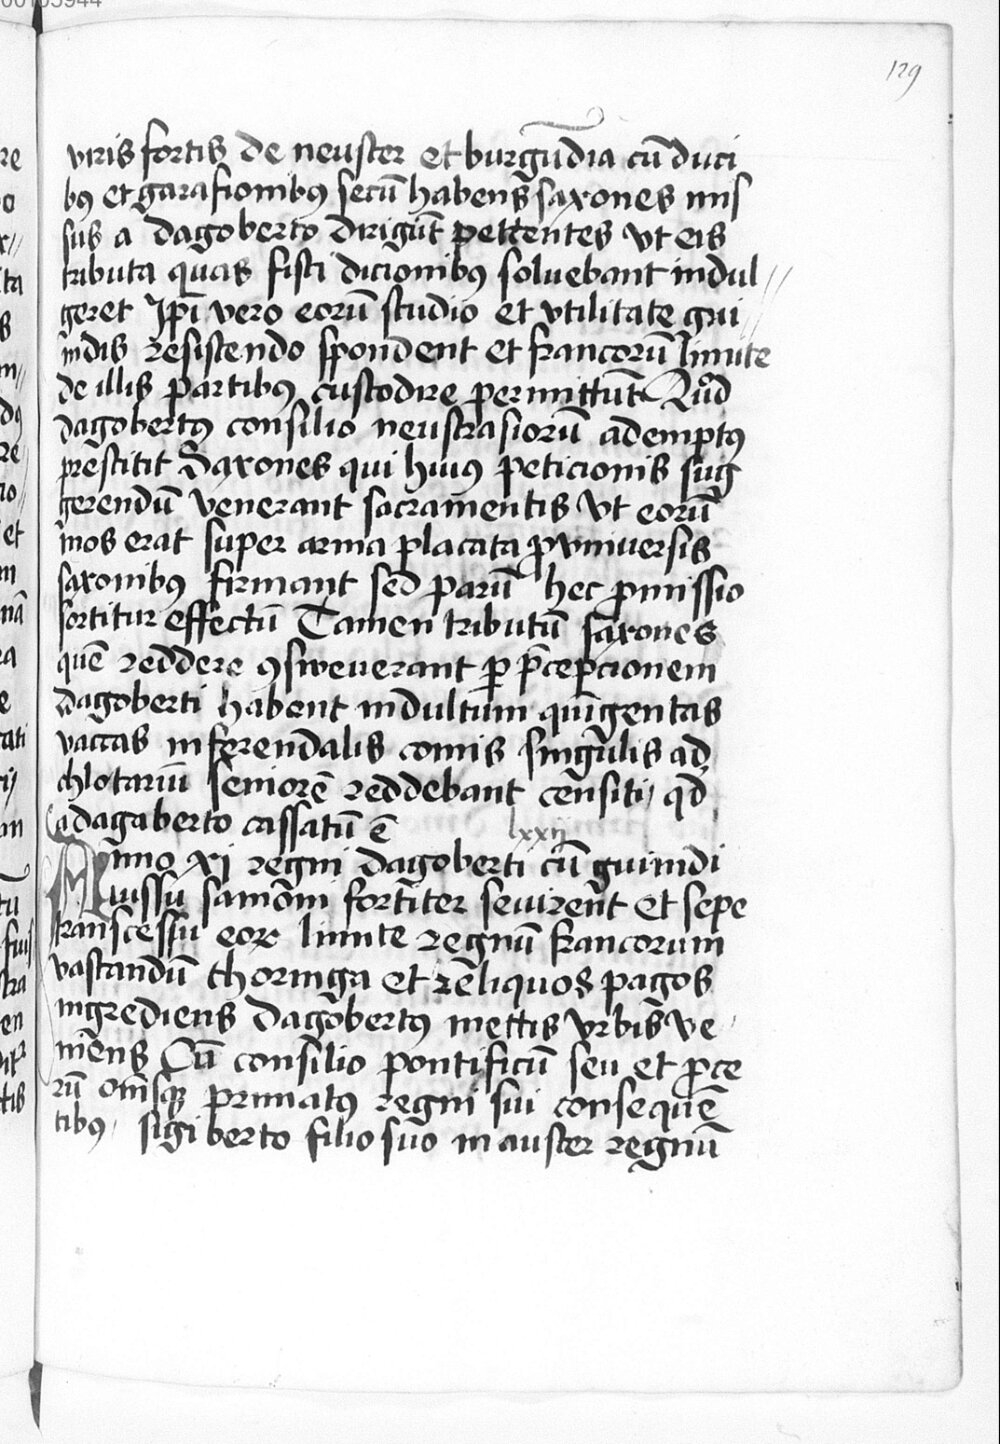 129
viris fortis de neuster et burgūdia cū duci
bꝯ et garafionibꝯ secū habens saxones mis
sus a dagoberto dirigūt pettentes vt eis
tributa quas fisci dicionibꝯ soluebant indul //
geret Ip̄i vero eorū studio et vtilitate gui //
indis resistendo spondent et francorū limite
de illis partibꝯ custodire permittūt Qūd
dagobertꝯ consilio neustrasiorū ademptꝯ
prestitit Saxones qui huiꝯ peticionis sug
gerendū venerant sacramentis vt eorū
mos erat super arma placata ꝓ vniuersis
saxonibꝯ firmant sed parū hec ꝓmissio
sortitur effectū Tamen tributū saxones
quē reddere ꝯsweuerant ꝑ p̄cepcionem
dagoberti habent indultum quingentas
vaccas inferendalis comis singulis ad
chlotariū seniorē reddebant censiti, qd
adagaberto cassatū ē lxxij
Anno xi regni dagoberti cū guinidi
iussu samōni fortiter seuirent et sepe
transcessu eoꝝ limite regnū francorum
vastandū thoringa et reliquos pagos
ingrediens dagobertꝯ mettis vrbis ve
niens Cū consilio pontificū seu et ꝓce
rū om̄sqꝫ primatꝯ regni sui consequē
tibꝯ, sigiberto filio suo in auster regnū